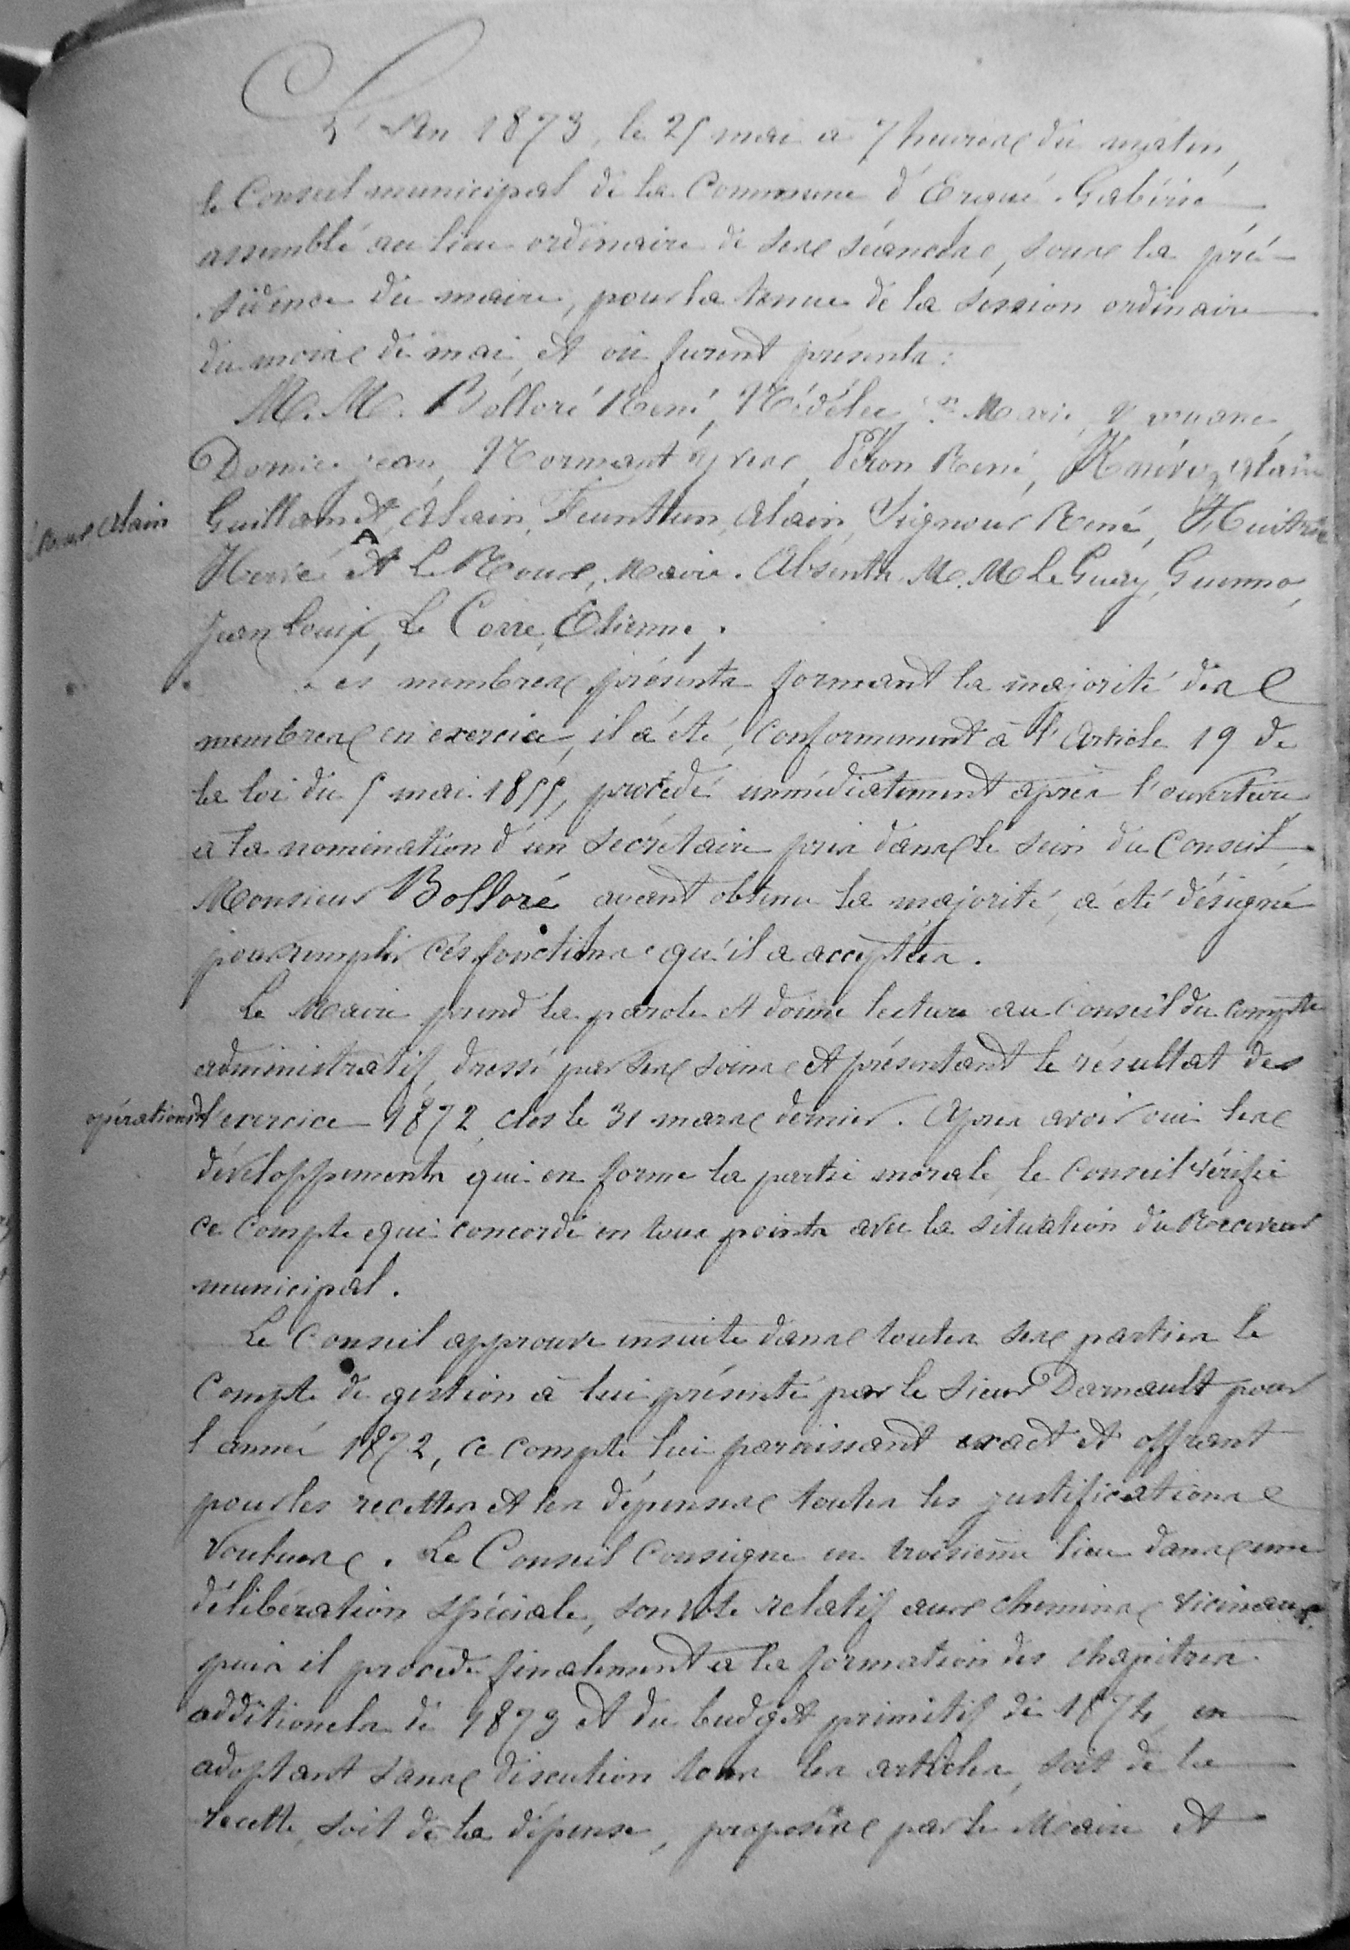 L'An 1873, le 25 mai à 7 heures du matin,
le Conseil municipal de la Commune d'Ergué-Gabéric
assemblé au lieu ordinaire de ses séances, sous la pré-
sidence du maire, pour la tenue de la session ordinaire
du mois de mai, et où furent présents :
M.M. Bolloré René, Nédélec Jn Marie,
jean, Normant yves, Péron René, Alain
Alain
Guillamet, Alain, Feunteun, Alain, Signour René, Huitric
Hervé et Le Roux, Maire. Absents M.M Le Guay, Guenno,
Jean Louis, Le Corre, Etienne,.
Les membres présents formant la majorité des
membres en exercice, il a été, conformement à l'Article 19 de
la loi du 5 mai 1855, procédé immédiatement après l'ouverture
à la nomination d'un secrétaire pris dans le sein du Conseil,
Monsieur Bolloré ayant obtenu la majorité, a été désigné
pour remplir ces fonctions qu'il a acceptées.
Le Maire prend la parole et donne lecture au Conseil du compte
administratif dressé par ses soins et présentant le résultat des
opérations de l'exercice 1872, clos le 31 mars dernier. Après avoir oui les
développements qui en forme la partie morale, le Conseil vérifie
ce compte qui concorde en tous points avec la situation du Receveur
municipal.
Le Conseil approuve ensuite dans toutes ses parties le
compte de gestion à lui présenté par le sieur Darnault pour
l'année 1872, ce compte lui paraissant exact et offrant
pour les recettes et les dépenses toutes les justifications
voulues. Le Conseil consigne en troisième lieu dans une
délibération spéciale, son vote relatif aux chemins vicinaux
puis il procède finalement à la formation des chapitres
additionels de 1873 et du budget primitif de 1874, en
adoptant sans discution tous les articles, soit de la
recette, soit de la dépense, proposées par le Maire et